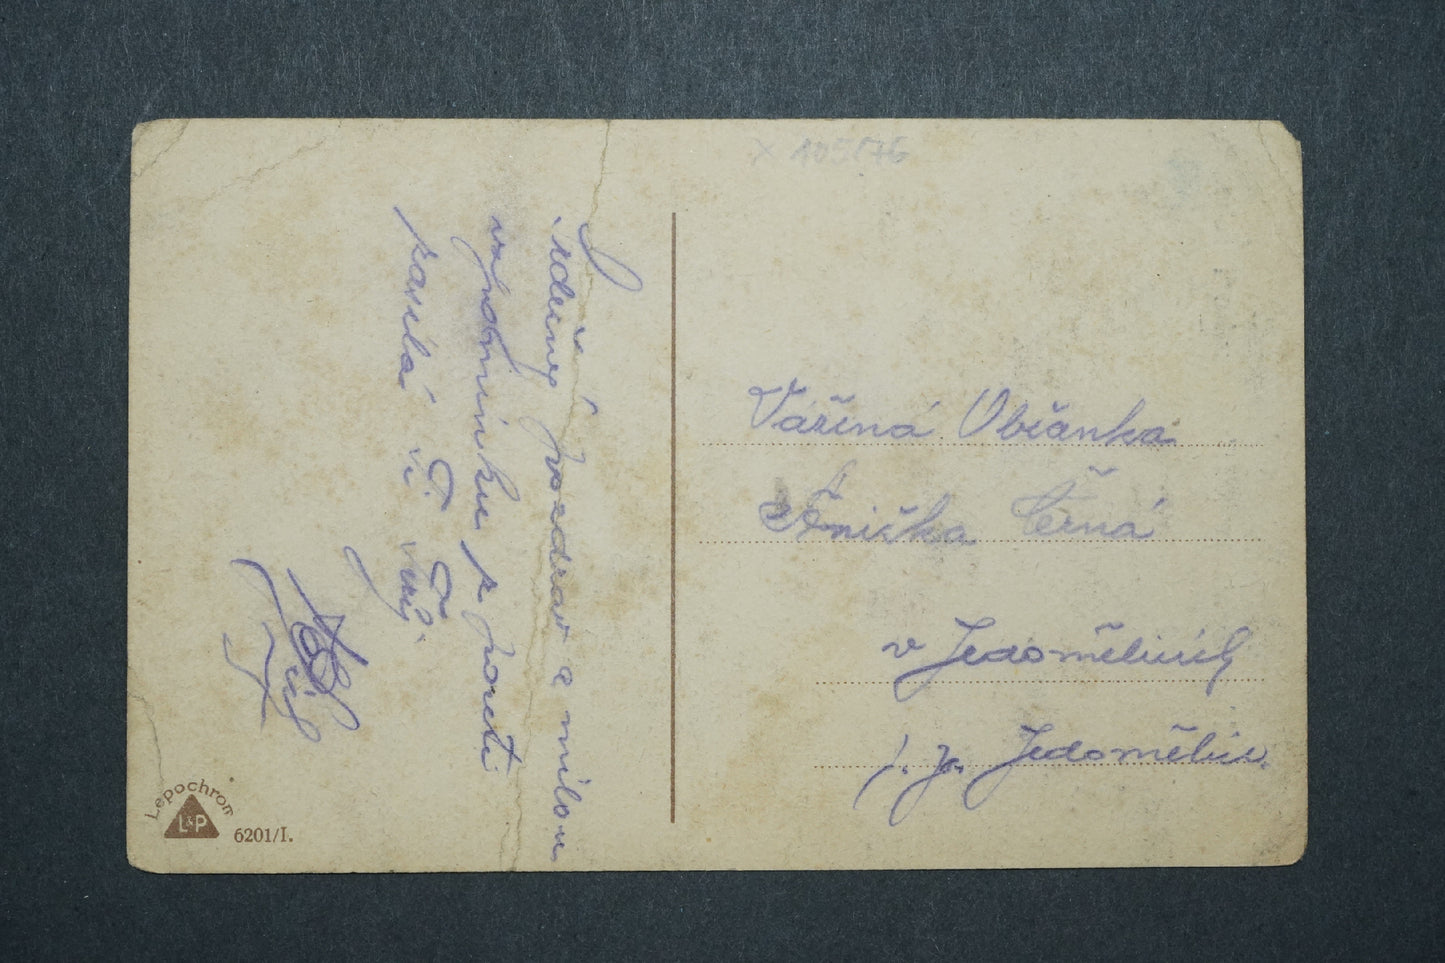 X 105176
Srdečný pozdrav a milou
vzpomínku z pouti
posílá Ti Tvůj
Vážená Občanka
Anička Černá
v Jedomělicích
p. p. Jedomělice.
Lepochrom
L&P
6201/I.